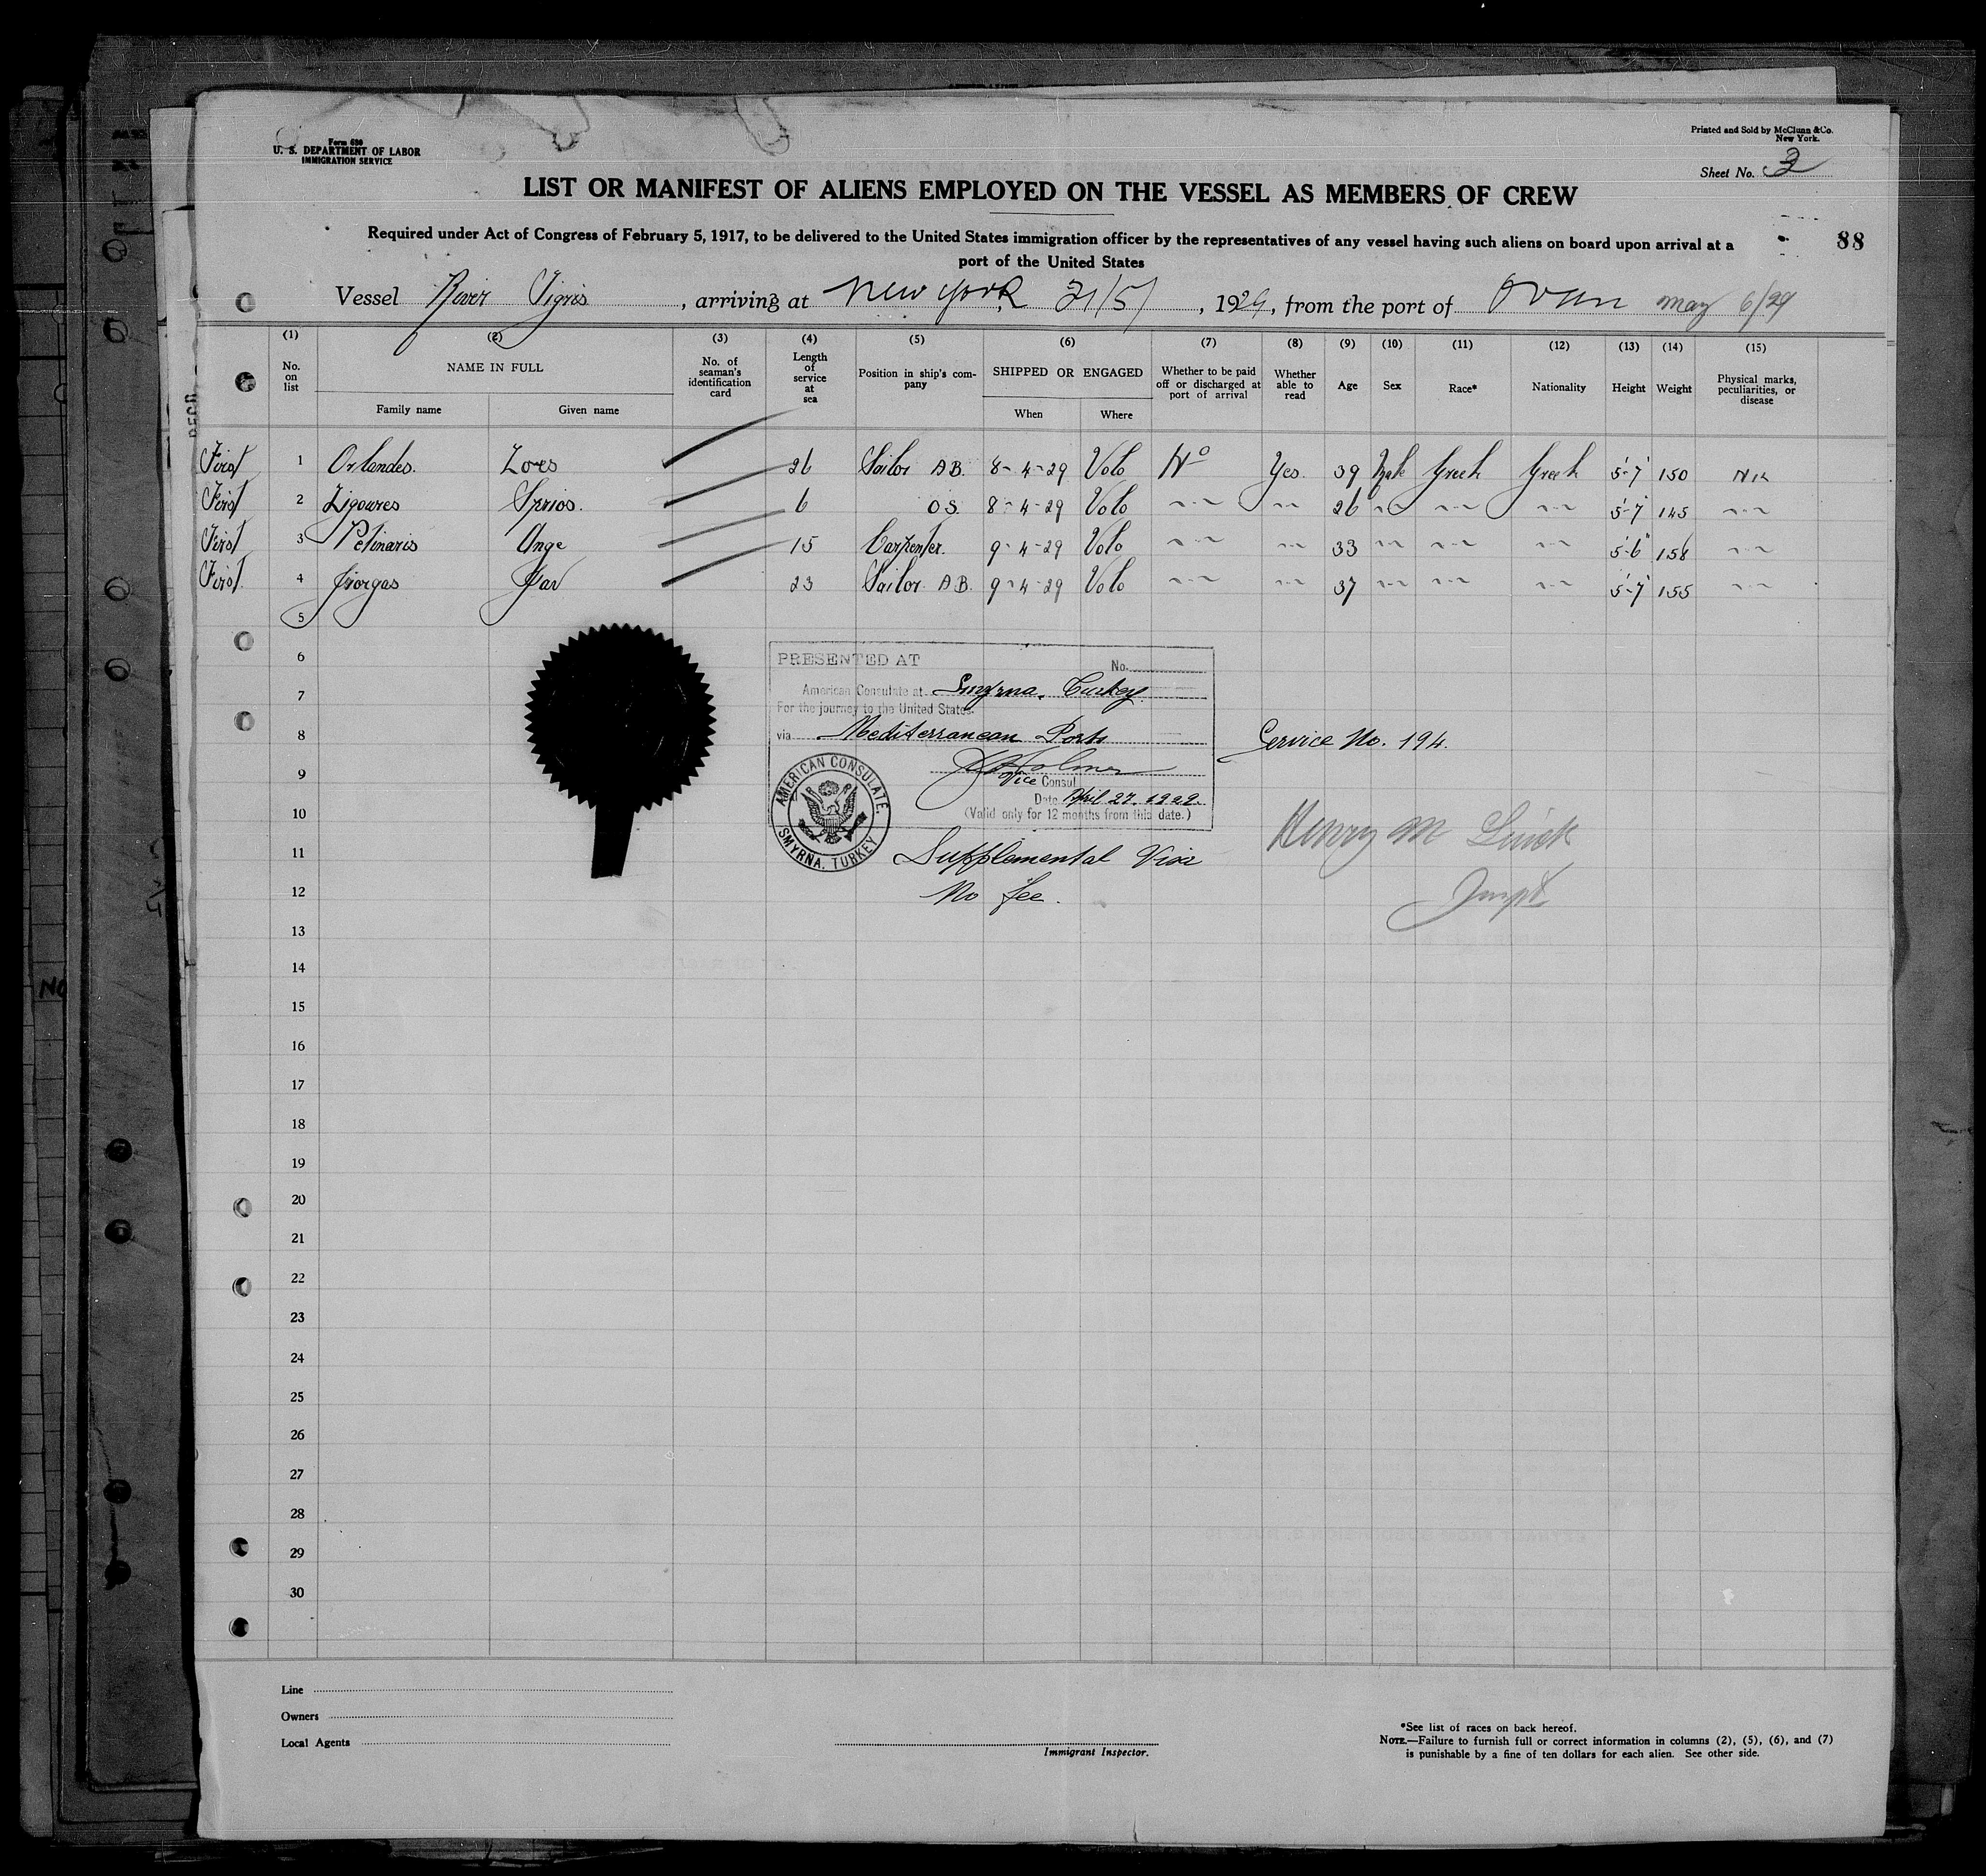 Form 680
U. S. DEPARTMENT OF LABOR
IMMIGRATION SERVICE
Printed and Sold by McClunn & Co.
New York.
Sheet No. 3
LIST OR MANIFEST OF ALIENS EMPLOYED ON THE VESSEL AS MEMBERS OF CREW
Required under Act of Congress of February 5, 1917, to be delivered to the United States immigration officer by the representatives of any vessel having such aliens on board upon arrival at a
port of the United States
88
Vessel River Tigris, arriving at New York 21/5/, 1929, from the port of Oran May 6/29
(1) (2) (3) (4) (5) (6) (7) (8) (9) (10) (11) (12) (13) (14) (15)
No. on list NAME IN FULL Family name Given name No. of seaman's identification card Length of service at sea Position in ship's company SHIPPED OR ENGAGED When Where Whether to be paid off or discharged at port of arrival Whether able to read Age Sex Race* Nationality Height Weight Physical marks, peculiarities, or disease
First 1 Orlandes. Zoes 26 Sailor A B. 8-4-29 Volo No Yes. 39 Male Greek Greek 5-7 150 Nil
First 2 Zigoures Sprios. 6 O S. 8-4-29 Volo 26 5-7 145
First 3 Petinaris Ange 15 Carpenter. 9-4-29 Volo 33 5-6 158
First. 4 Giorgas Pav 23 Sailor A B. 9-4-29 Volo 37 5-7 155
5
6
7
8
9
10
11
12
13
14
15
16
17
18
19
20
21
22
23
24
25
26
27
28
29
30
PRESENTED AT
No.
American Consulate at Smyrna, Turkey.
For the journey to the United States.
via Mediterranean Ports
Vice Consul
Date April 27. 1929.
(Valid only for 12 months from this date.)
AMERICAN CONSULATE.
SMYRNA, TURKEY
Supplemental Visa
No fee.
Service No. 194.
Henry M
Line
Owners
Local Agents
Immigrant Inspector.
*See list of races on back hereof.
NOTE.—Failure to furnish full or correct information in columns (2), (5), (6), and (7)
is punishable by a fine of ten dollars for each alien. See other side.